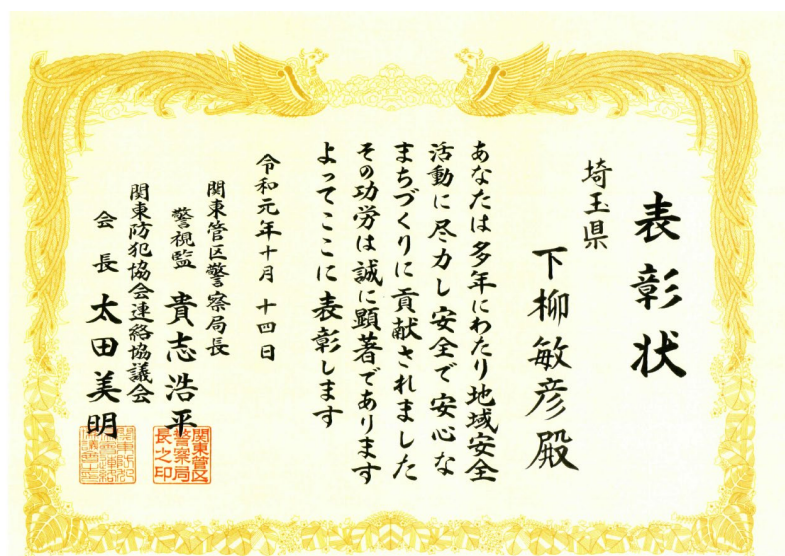 表彰状
埼玉県
下柳敏彦殿
あなたは多年にわたり地域安全
活動に尽力し安全で安心な
まちづくりに貢献されました
その功労は誠に顕著であります
よってここに表彰します
令和元年十月十四日
関東管区警察局長
警視監 貴志浩平
関東管区警察局長之印
関東防犯協会連絡協議会
会長 太田美明